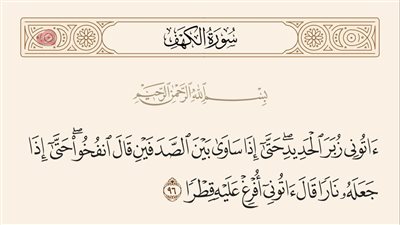 سُورَةُ الكَهْفِ
بِسْمِ اللَّهِ الرَّحْمَٰنِ الرَّحِيمِ
ءَاتُونِي زُبَرَ الْحَدِيدِ ۖ حَتَّىٰٓ إِذَا سَاوَىٰ بَيْنَ الصَّدَفَيْنِ قَالَ انفُخُوا۟ ۖ حَتَّىٰٓ إِذَا
جَعَلَهُۥ نَارًا قَالَ ءَاتُونِيٓ أُفْرِغْ عَلَيْهِ قِطْرًا ٩٦